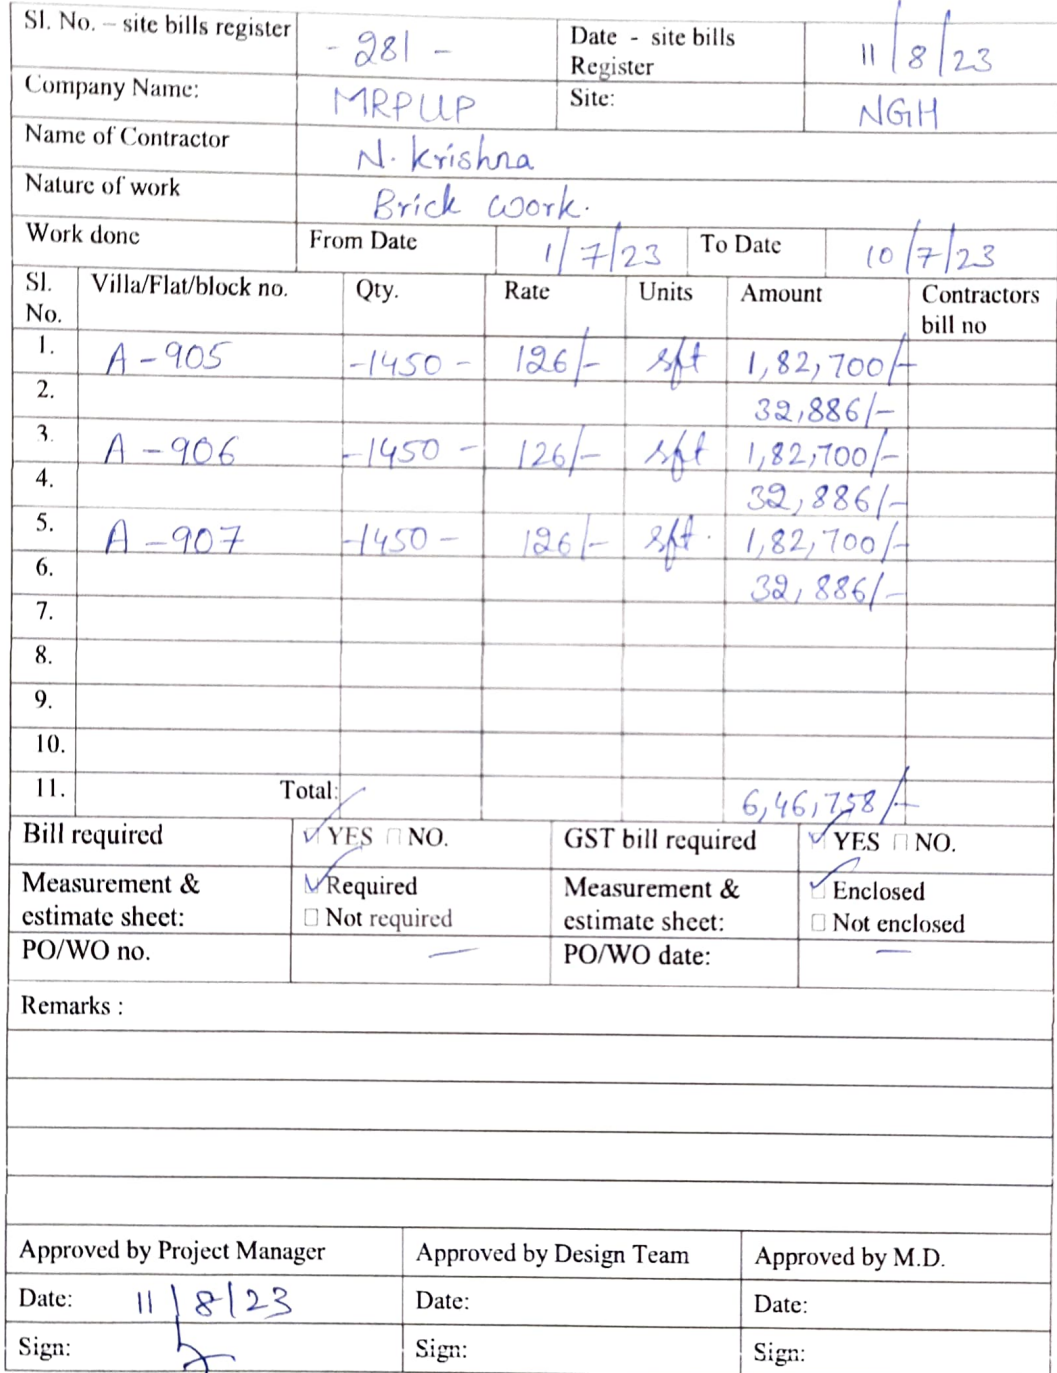 Sl. No. – site bills register - 281 - Date - site bills Register 11/8/23
Company Name: MRPUP Site: NGH
Name of Contractor N. Krishna
Nature of work Brick work.
Work done From Date 1/7/23 To Date 10/7/23
Sl. No. Villa/Flat/block no. Qty. Rate Units Amount Contractors bill no
1. A-905 -1450- 126/- sft 1,82,700/-
2. 32,886/-
3. A-906 -1450- 126/- sft 1,82,700/-
4. 32,886/-
5. A-907 -1450- 126/- sft. 1,82,700/-
6. 32,886/-
7.
8.
9.
10.
11. Total: 6,46,758/-
Bill required ☑ YES ☐ NO. GST bill required ☑ YES ☐ NO.
Measurement & estimate sheet: ☑ Required ☐ Not required Measurement & estimate sheet: ☑ Enclosed ☐ Not enclosed
PO/WO no. — PO/WO date: —
Remarks :
Approved by Project Manager Approved by Design Team Approved by M.D.
Date: 11/8/23 Date: Date:
Sign: Sign: Sign: